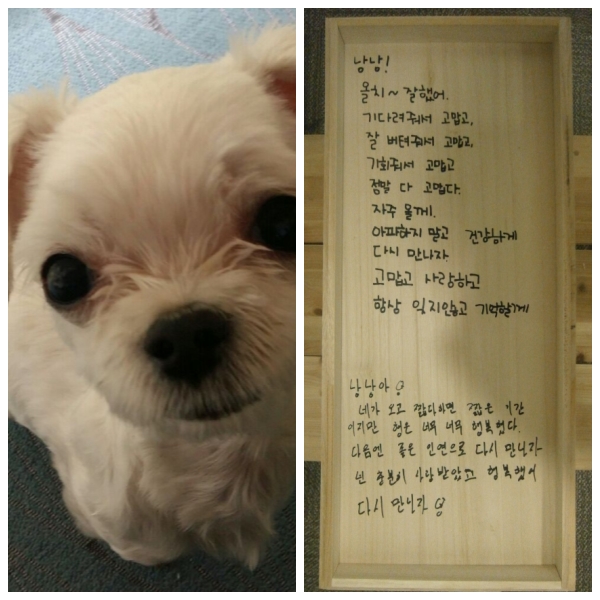 낭낭!
올치~ 잘했어.
기다려줘서 고맙고,
잘 버텨줘서 고맙고,
기회줘서 고맙고
정말 다 고맙다.
자주 올께.
아파하지 말고 건강하게
다시 만나자
고맙고 사랑하고
항상 잊지않고 기억할께
낭낭아
네가 오고 짧다하면 짧은 기간
이지만 형은 너무 너무 행복했다.
다음엔 좋은 인연으로 다시 만나자
넌 충분히 사랑받았고 행복했어
다시 만나자